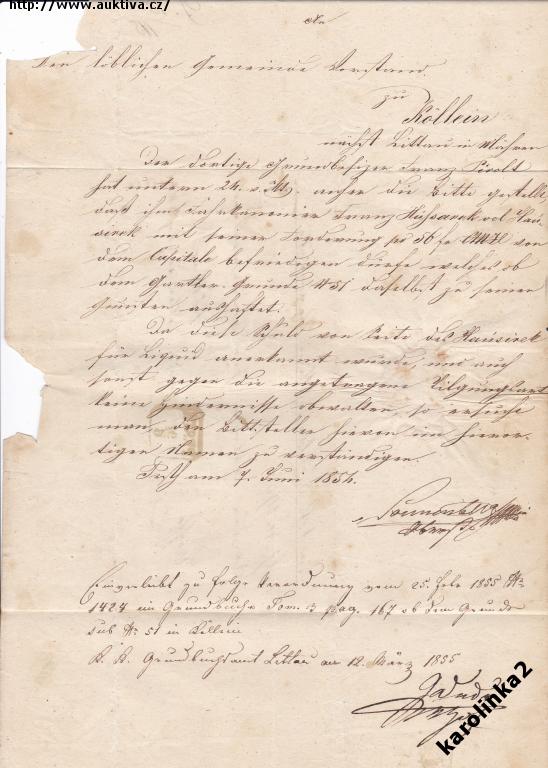 https://www.auktiva.cz/
An
Den löblichen Gemeinde Vorstand
zu
Köllein
nächst Littau in Mähren
Der dortige Grundbesitzer Franz Pivolt
hat unterm 24. v. Mts. anher die Bitte gestellt,
daß ihm Fahrkanonier Franz Hußarek vel Hau
sirek mit seiner Forderung pr 56 f CMze von
dem Capitale befriedigen dürfe welches ob
dem Grunde N 51 daselbst zu seinen
Gunsten aushaftet.
Da diese Schuld von Seite des Hausirek
für liquid anerkannt wurde, und auch
sonst gegen die angetragene Tilgungsart
keine Hindernisse obwalten, so ersucht
man, den Bittsteller hievon im hieror-
tigen Namen zu verständigen.
am 7. Juni 1854.
Oberst
Einverleibt zu Folge Verordnung vom 25. Febr 1855 N
1424 im Grundbuche Tom. 3 pag. 167 ob dem Grunde
sub N 51 in Köllein
K. K. Grundbuchsamt Littau am 12. März 1855
karolinka2